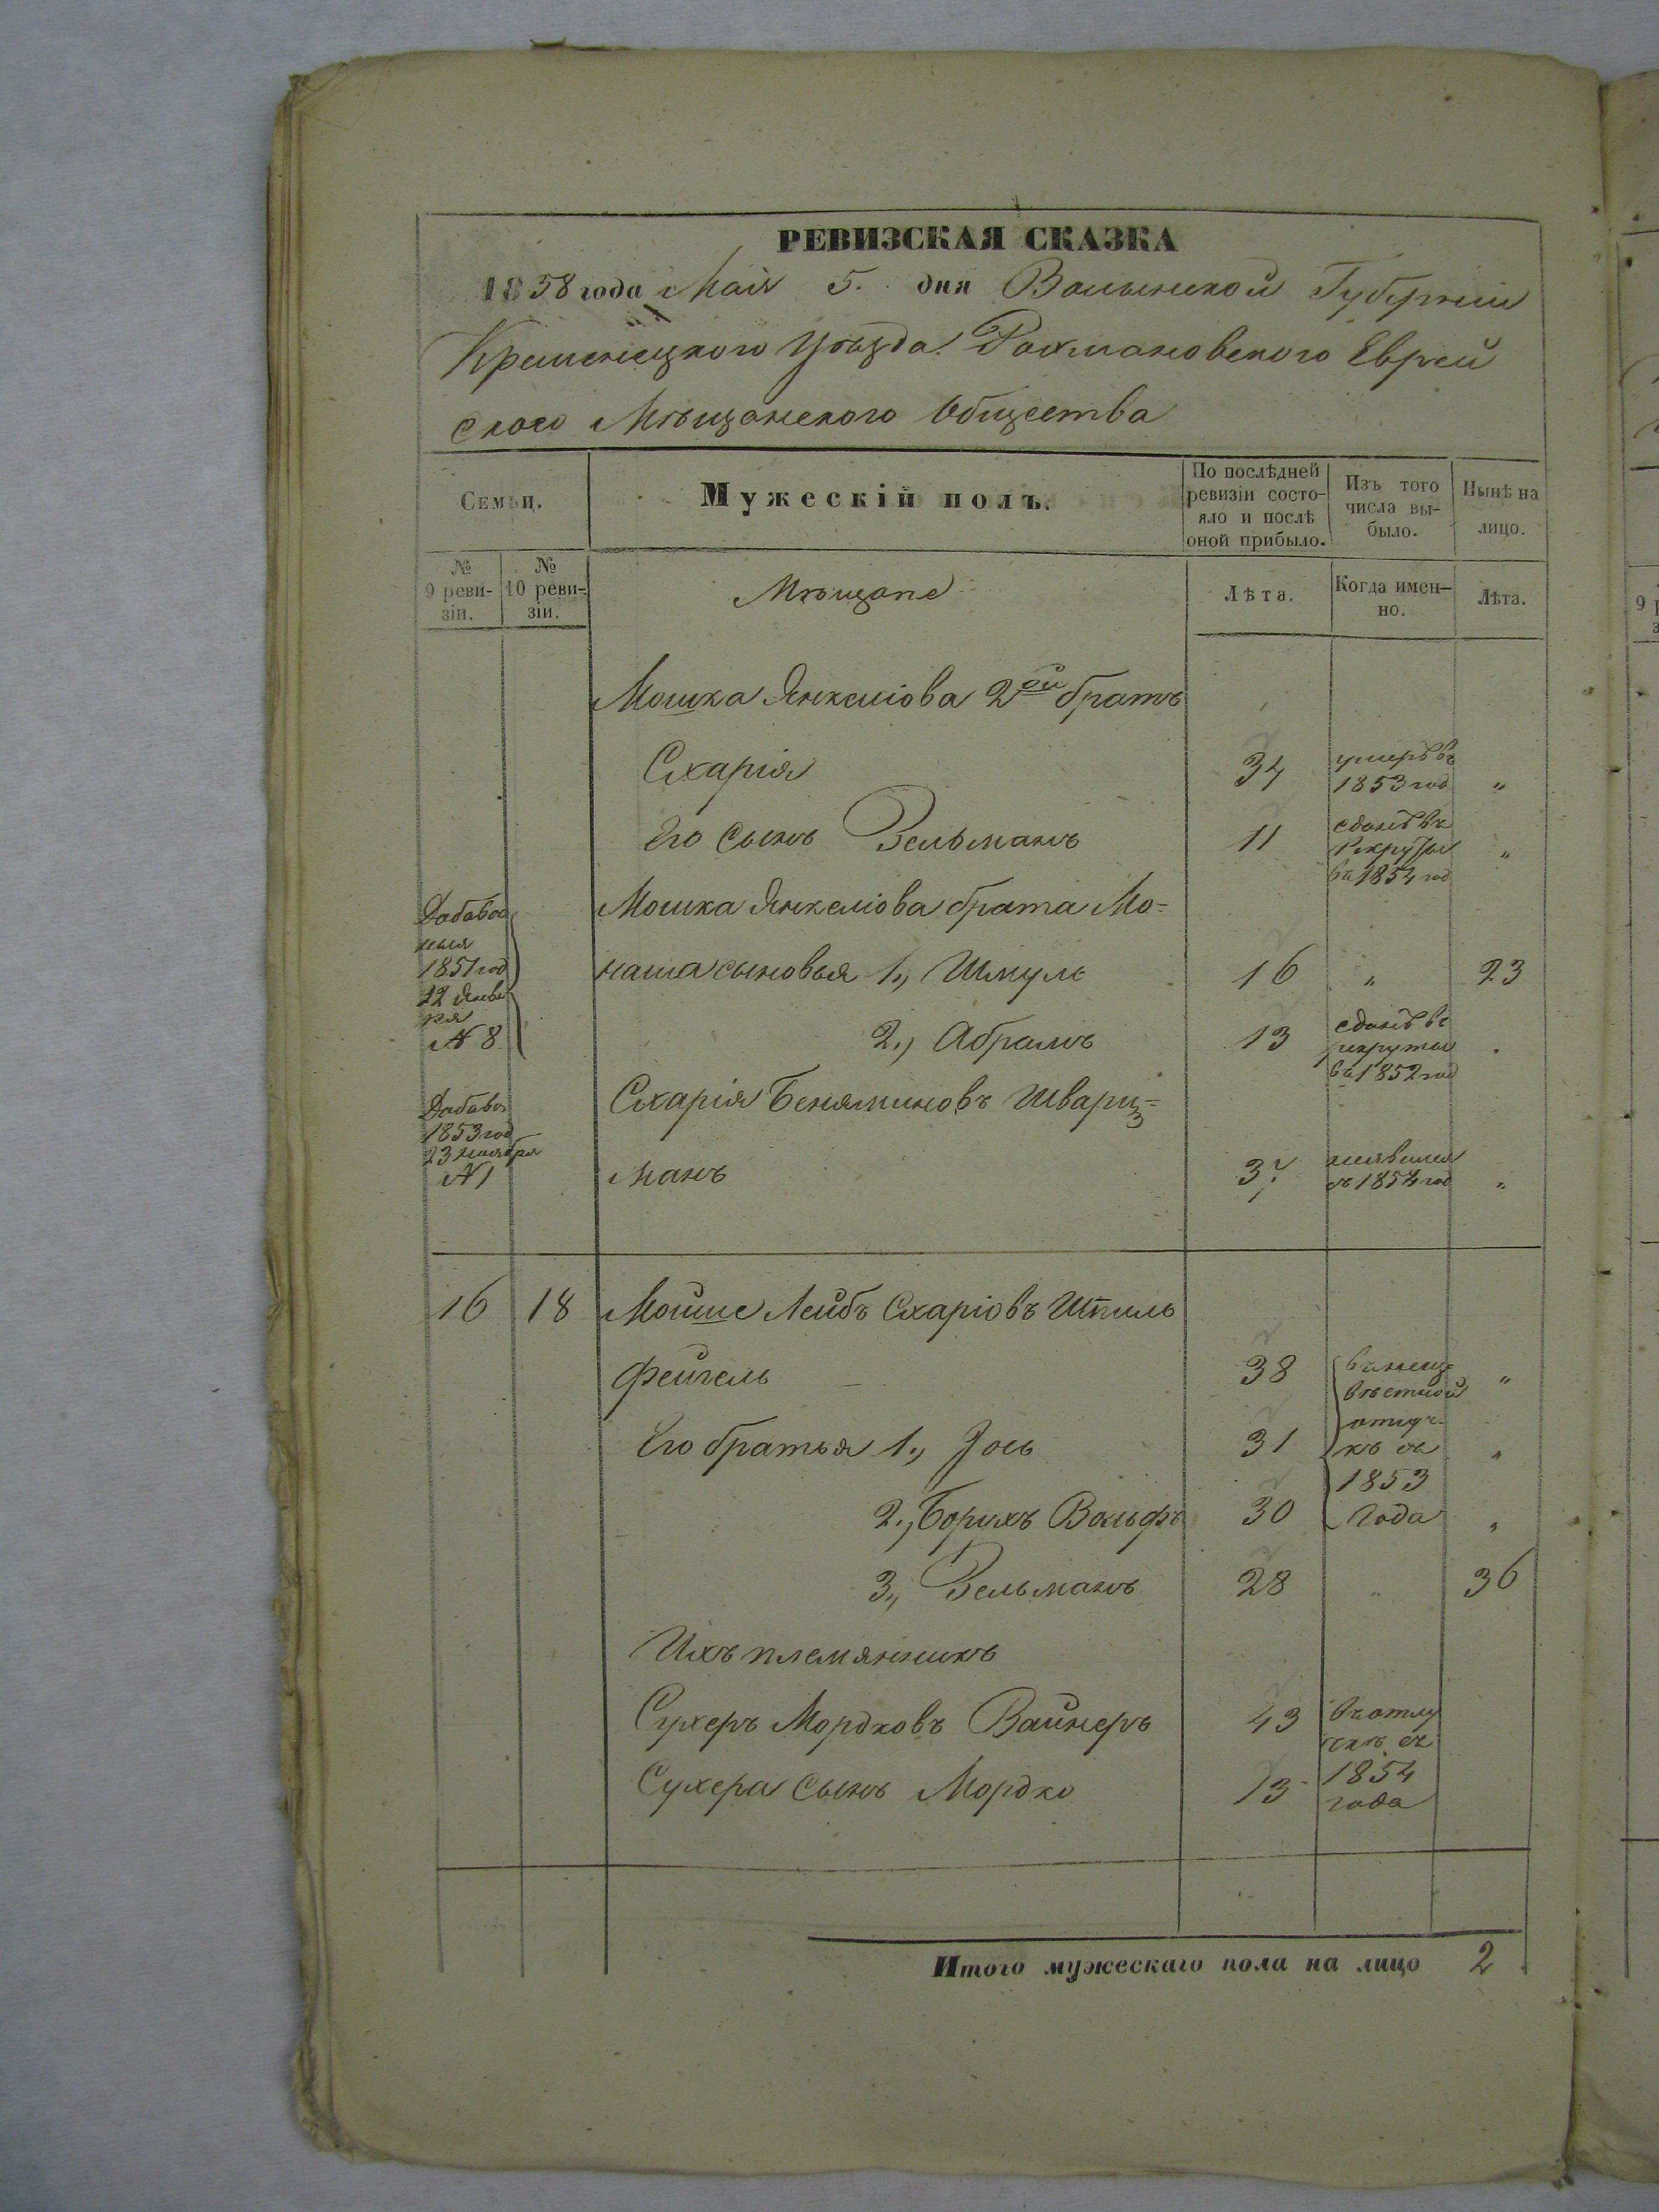 РЕВИЗСКАЯ СКАЗКА
1858 года Мая 5. дня Волынской Губерніи
Кременецкого Уѣзда Рохмановского Еврей
ского Мѣщанского Общества
Семьи.
Мужескій полъ.
По послѣдней
ревизіи состо-
яло и послѣ
оной прибыло.
Изъ того
числа вы-
было.
Нынѣ на
лицо.
№
9 реви-
зіи.
№
10 реви-
зіи.
Мѣщане
Лѣта.
Когда имен-
но.
Лѣта.
Мошка Янкеліова 2ой братъ
Схарія 34 умеръ въ
1853 год "
Его сынъ Зельманъ 11 сданъ въ
рекруты "
въ 1854 год
Добавоч
ныя
1851 год
12 Янва
ря
№ 8
Мошка Янкеліова брата Мо=
наша сыновья 1., Шмуль 16 " 23
2., Абрамъ 13 сданъ въ
рекруты
въ 1852 год
Добавоч
1853 год
23 ноября
№ 1
Схарія Беняминовъ Шварц=
манъ въ 1854 год "
16 18 Мойше Лейбъ Схаріовъ Шпиль
фейгель 38 "
Его братья 1., Іось 31 "
2., Борухъ Вольфъ 30 "
3., Зельманъ 28 " 36
въ неиз
вѣстной
отлуч
кѣ съ
1853
года
Ихъ племянникъ
Сухеръ Мордковъ Вайнеръ 43 въ отлу
чкѣ съ
Сухера сынъ Мордко 13 1854
года
Итого мужескаго пола на лицо 2